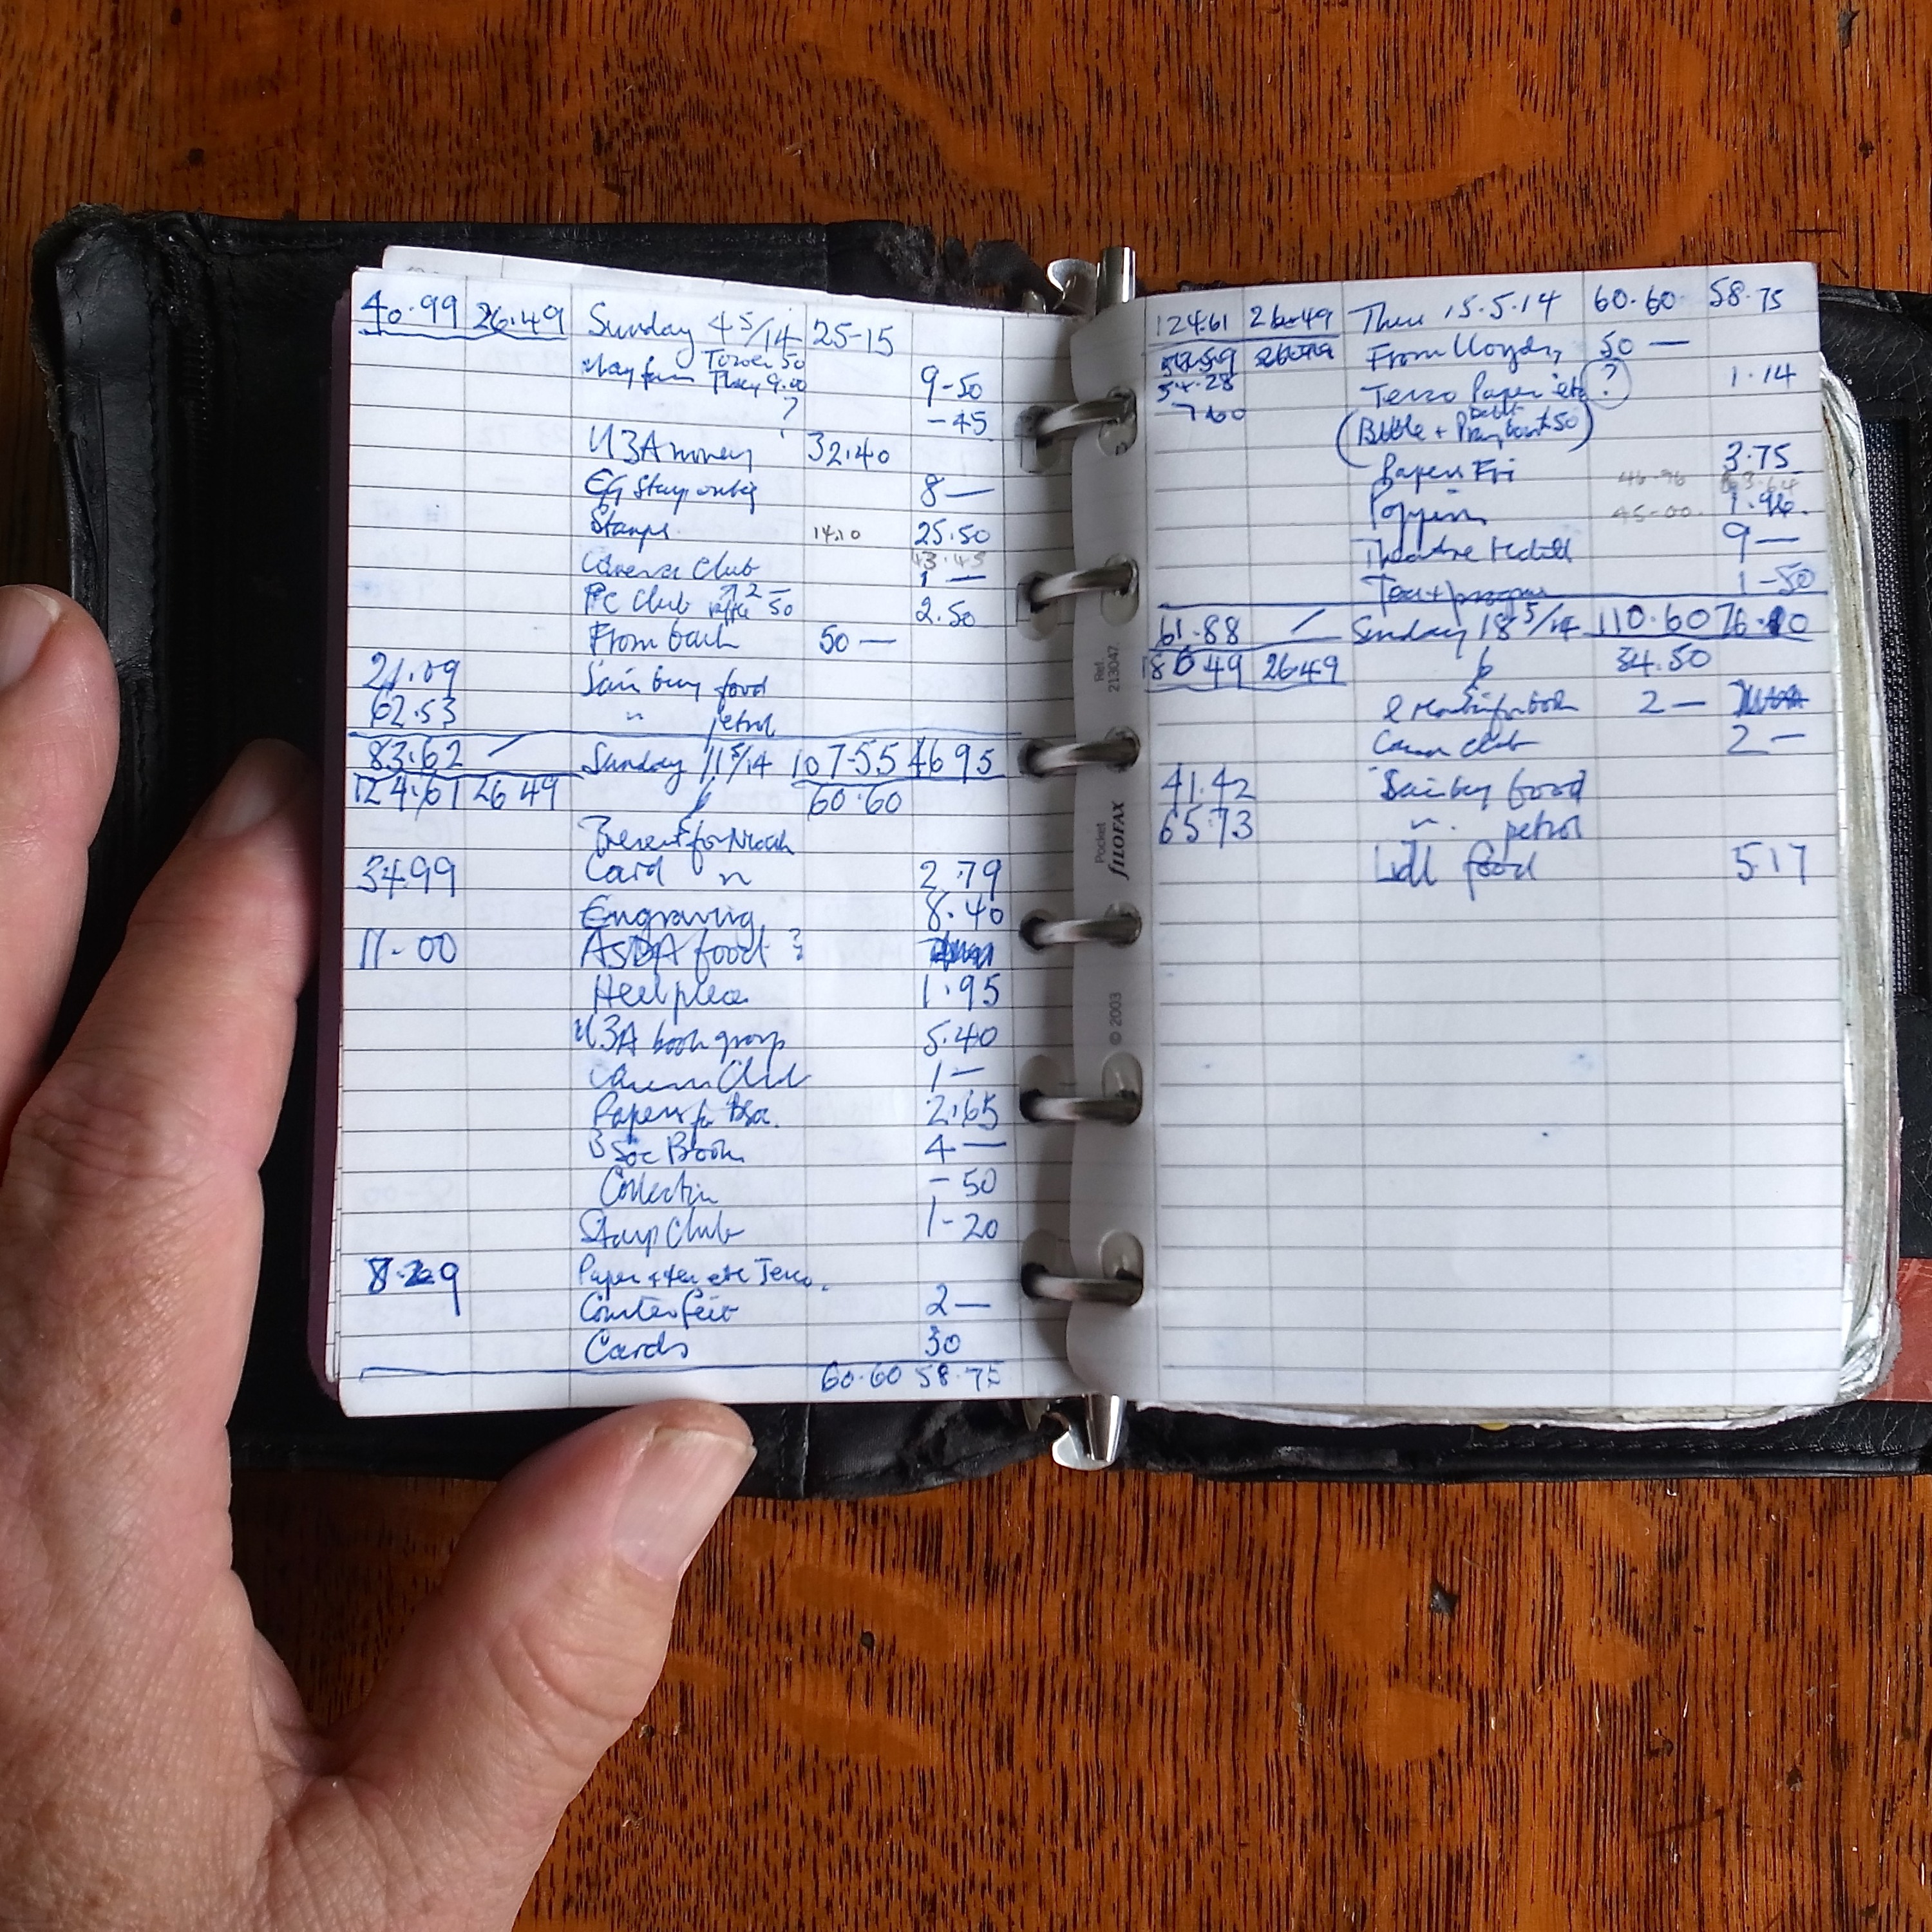 40.99 26.49 Sunday 4 5/14 25-15
50
9.00 9-50
? -45
U3A money 32.40
8—
Stamps 14.10 25.50
43.45
Club 1 —
PC Club 2 — 50 2.50
From bank 50 —
21.09 Sainbury food
62.53 " petrol
83.62 / Sunday 11 5/14 107-55 46 95
124.61 26 49 b 60.60
Present for
34.99 Card " 2.79
Engraving 8.40
11-00 ASDA food ?
Heel 1.95
U3A book group 5.40
Club 1 —
Papers for 2.65
B Soc Book 4 —
Collection - 50
Stamp Club 1-20
8.29 Paper + etc Tesco
Counterfeit 2 —
Cards 30
60.60 58.75
124.61 26-49 Thur 15.5.14 60.60 58.75
From Lloyds, 50 —
54.28 Tesco Paper etc ? 1.14
7.60
(Bible + 50)
Papers Fri 3.75
46.96 63.64
Poppins 45-00 1.96
Theatre 9 —
Tea + 1-50
61.88 / Sunday 18 5/14 110.60 76.10
186 49 26.49 b 34.50
2 —
club 2 —
41.42 Sainbury food
65.73 " petrol
Lidl food 5.17
Ref. 213047
Pocket fILOFAX
© 2003